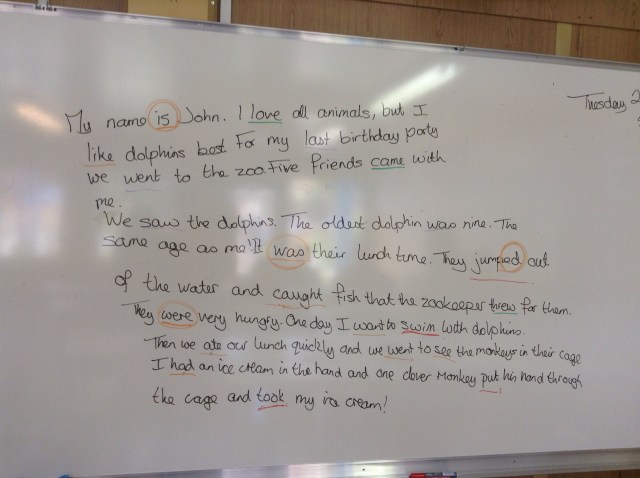 Tuesday 2
My name is John. I love all animals, but I
like dolphins best For my last birthday party
we went to the zoo. Five friends came with
me.
We saw the dolphins. The oldest dolphin was nine. The
same age as me! It was their lunch time. They jumped out
of the water and caught fish that the zookeeper threw for them.
They were very hungry. One day I want to swim with dolphins.
Then we ate our lunch quickly and we went to see the monkeys in their cage
I had an ice cream in the hand and one clever Monkey put his hand through
the cage and took my ice cream!